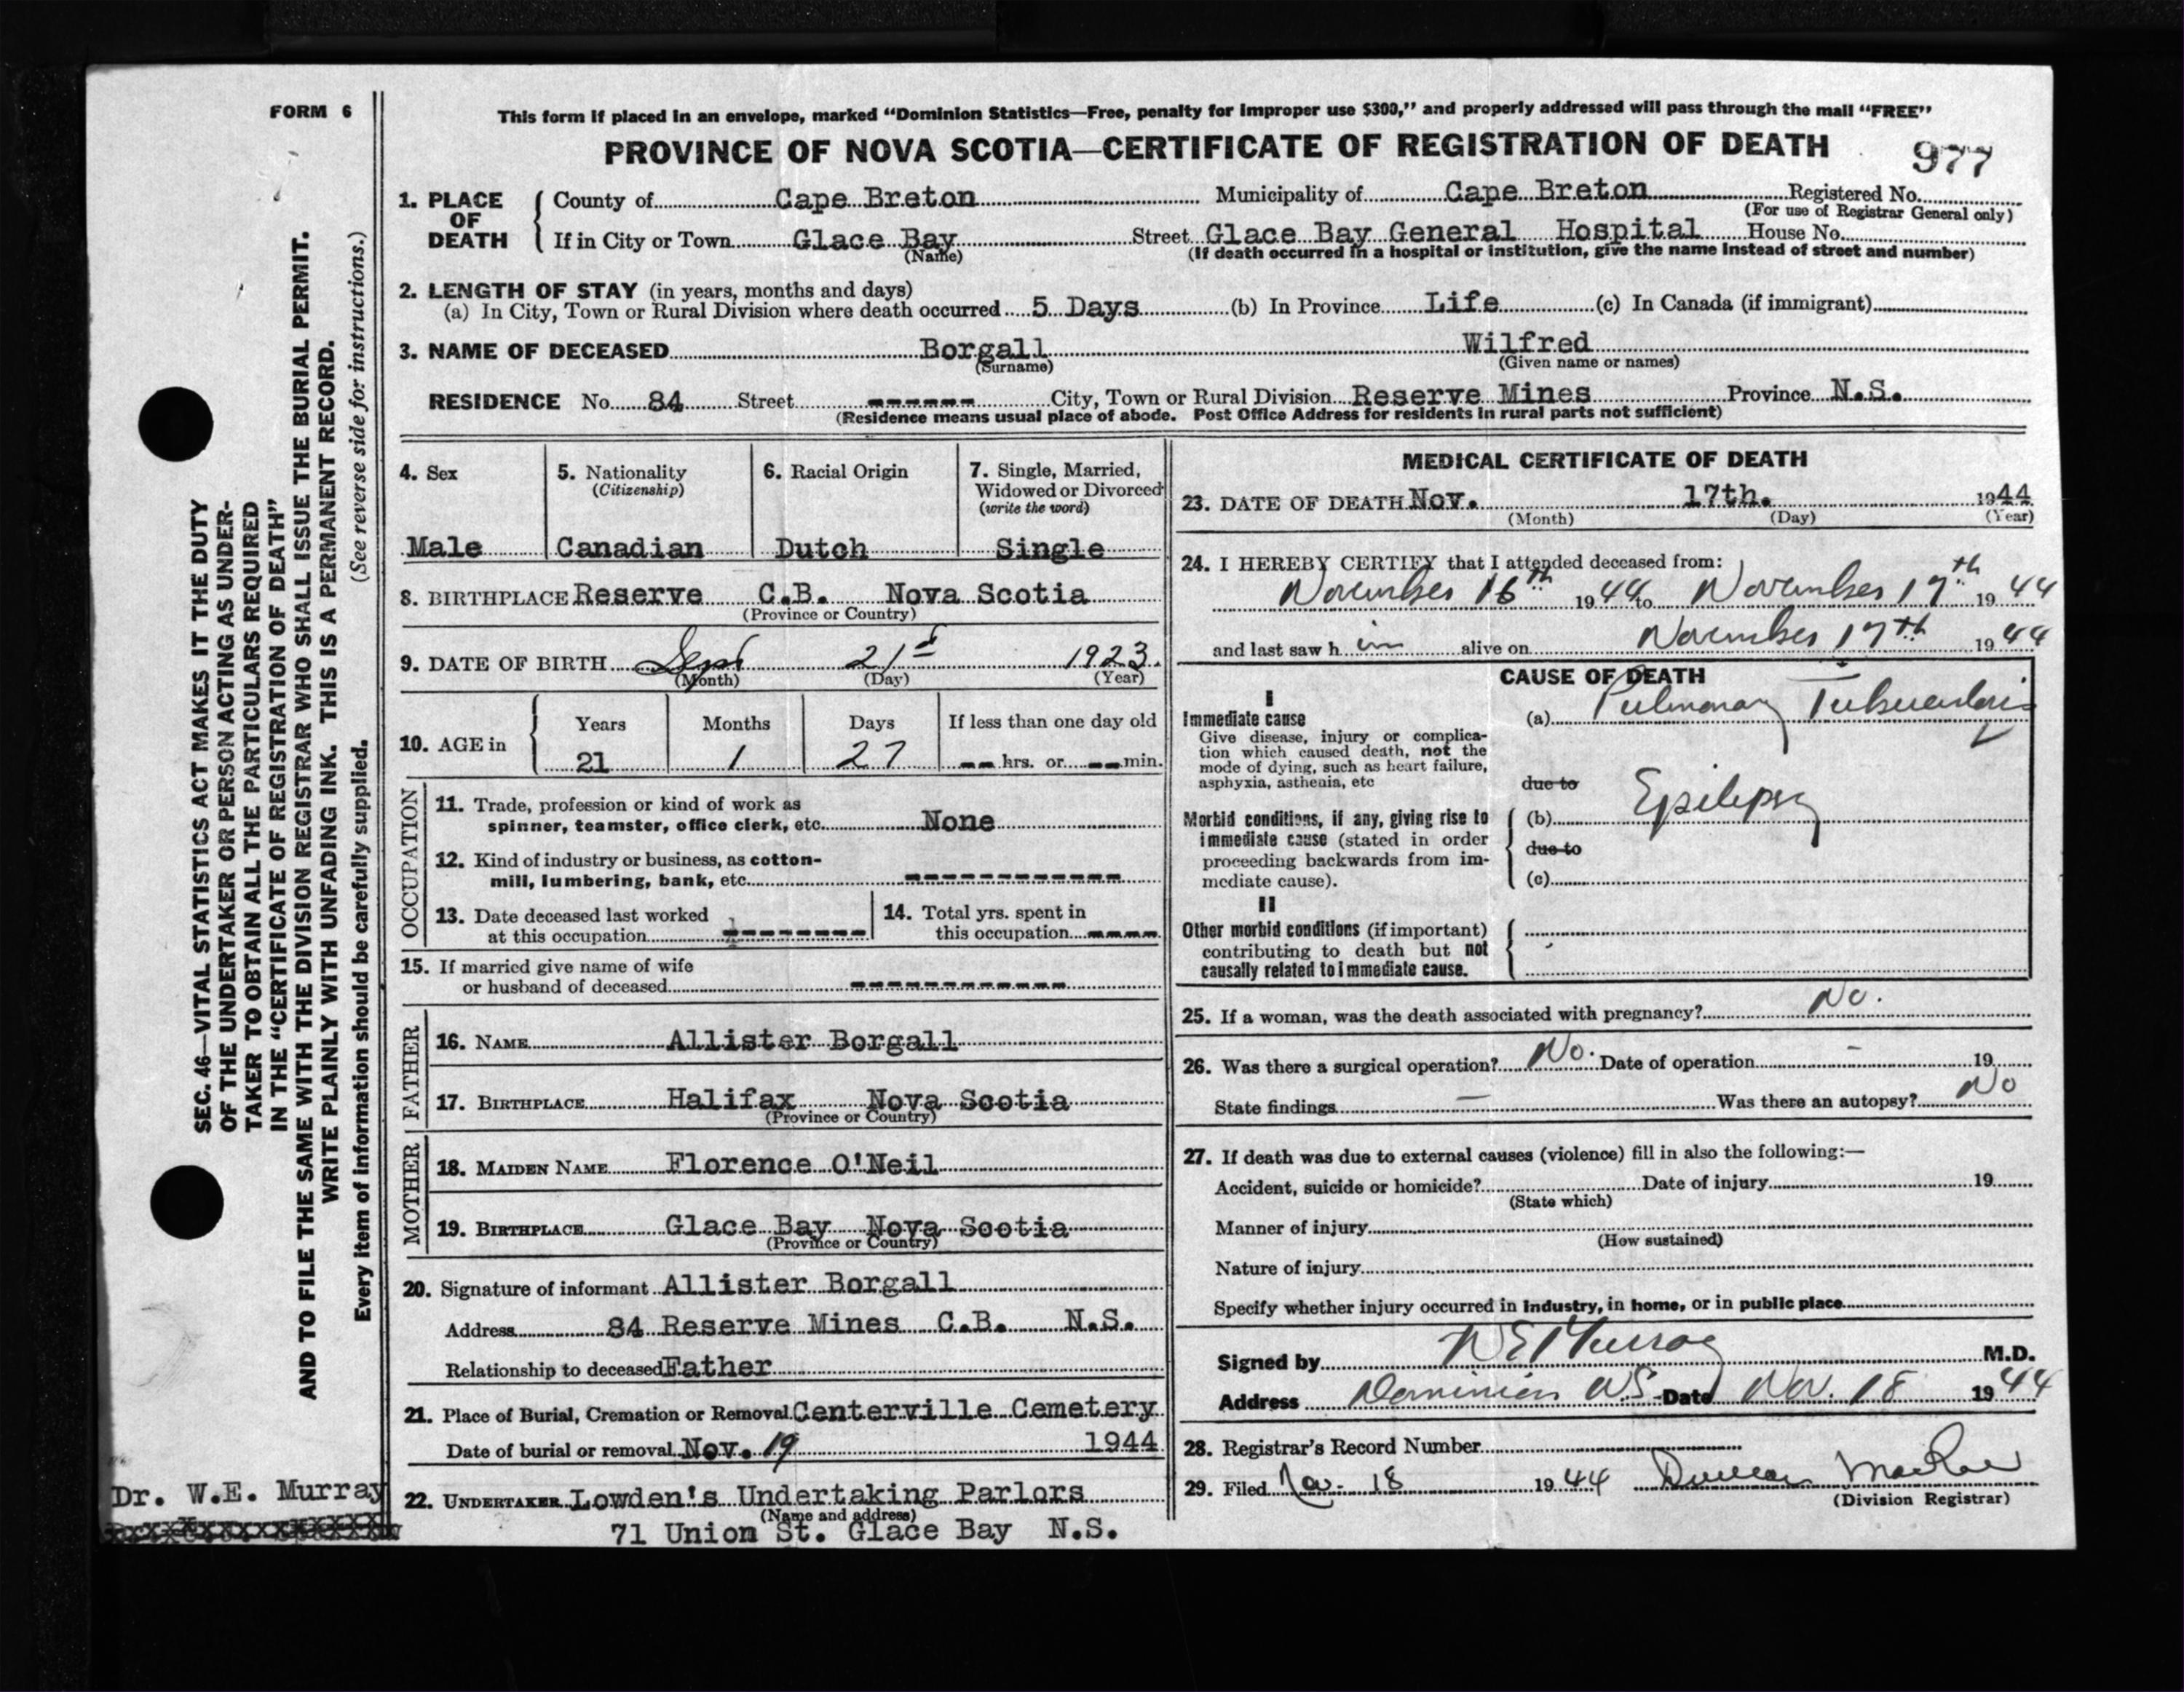 FORM 6
This form if placed in an envelope, marked “Dominion Statistics—Free, penalty for improper use $300,” and properly addressed will pass through the mail “FREE”
PROVINCE OF NOVA SCOTIA—CERTIFICATE OF REGISTRATION OF DEATH
977
1. PLACE OF DEATH
County of Cape Breton Municipality of Cape Breton Registered No.
(For use of Registrar General only)
If in City or Town Glace Bay Street Glace Bay General Hospital House No.
(Name) (If death occurred in a hospital or institution, give the name instead of street and number)
2. LENGTH OF STAY (in years, months and days)
(a) In City, Town or Rural Division where death occurred 5 Days (b) In Province Life (c) In Canada (if immigrant)
3. NAME OF DECEASED Borgall Wilfred
(Surname) (Given name or names)
RESIDENCE No. 84 Street ------ City, Town or Rural Division Reserve Mines Province N.S.
(Residence means usual place of abode. Post Office Address for residents in rural parts not sufficient)
4. Sex
Male
5. Nationality
(Citizenship)
Canadian
6. Racial Origin
Dutch
7. Single, Married,
Widowed or Divorced
(write the word)
Single
8. BIRTHPLACE Reserve C.B. Nova Scotia
(Province or Country)
9. DATE OF BIRTH Sept 21st 1923.
(Month) (Day) (Year)
10. AGE in
Years Months Days If less than one day old
21 1 27 -- hrs. or -- min.
OCCUPATION
11. Trade, profession or kind of work as
spinner, teamster, office clerk, etc. None
12. Kind of industry or business, as cotton-
mill, lumbering, bank, etc. ------------
13. Date deceased last worked
at this occupation --------
14. Total yrs. spent in
this occupation ----
15. If married give name of wife
or husband of deceased ------------
FATHER
16. NAME Allister Borgall
17. BIRTHPLACE Halifax Nova Scotia
(Province or Country)
MOTHER
18. MAIDEN NAME Florence O'Neil
19. BIRTHPLACE Glace Bay Nova Scotia
(Province or Country)
20. Signature of informant Allister Borgall
Address 84 Reserve Mines C.B. N.S.
Relationship to deceased Father
21. Place of Burial, Cremation or Removal Centerville Cemetery
Date of burial or removal Nov. 19 1944
22. UNDERTAKER Lowden's Undertaking Parlors
(Name and address)
71 Union St. Glace Bay N.S.
MEDICAL CERTIFICATE OF DEATH
23. DATE OF DEATH Nov. 17th. 1944
(Month) (Day) (Year)
24. I HEREBY CERTIFY that I attended deceased from:
November 16th 1944 to November 17th 1944
and last saw him alive on November 17th 1944
CAUSE OF DEATH
I
Immediate cause
Give disease, injury or complica-
tion which caused death, not the
mode of dying, such as heart failure,
asphyxia, asthenia, etc
(a) Pulmonary Tuberculosis
due to
Morbid conditions, if any, giving rise to
immediate cause (stated in order
proceeding backwards from im-
mediate cause).
(b) Epilepsy
due to
(c)
II
Other morbid conditions (if important)
contributing to death but not
causally related to immediate cause.
25. If a woman, was the death associated with pregnancy? No.
26. Was there a surgical operation? No. Date of operation - 19
State findings — Was there an autopsy? No
27. If death was due to external causes (violence) fill in also the following:—
Accident, suicide or homicide? Date of injury 19
(State which)
Manner of injury
(How sustained)
Nature of injury
Specify whether injury occurred in industry, in home, or in public place
Signed by W E Murray M.D.
Address Dominion NS Date Nov. 18 1944
28. Registrar's Record Number
29. Filed Nov. 18 1944 Duncan MacRae
(Division Registrar)
SEC. 46—VITAL STATISTICS ACT MAKES IT THE DUTY
OF THE UNDERTAKER OR PERSON ACTING AS UNDER-
TAKER TO OBTAIN ALL THE PARTICULARS REQUIRED
IN THE “CERTIFICATE OF REGISTRATION OF DEATH”
AND TO FILE THE SAME WITH THE DIVISION REGISTRAR WHO SHALL ISSUE THE BURIAL PERMIT.
WRITE PLAINLY WITH UNFADING INK. THIS IS A PERMANENT RECORD.
Every item of information should be carefully supplied. (See reverse side for instructions.)
Dr. W.E. Murray